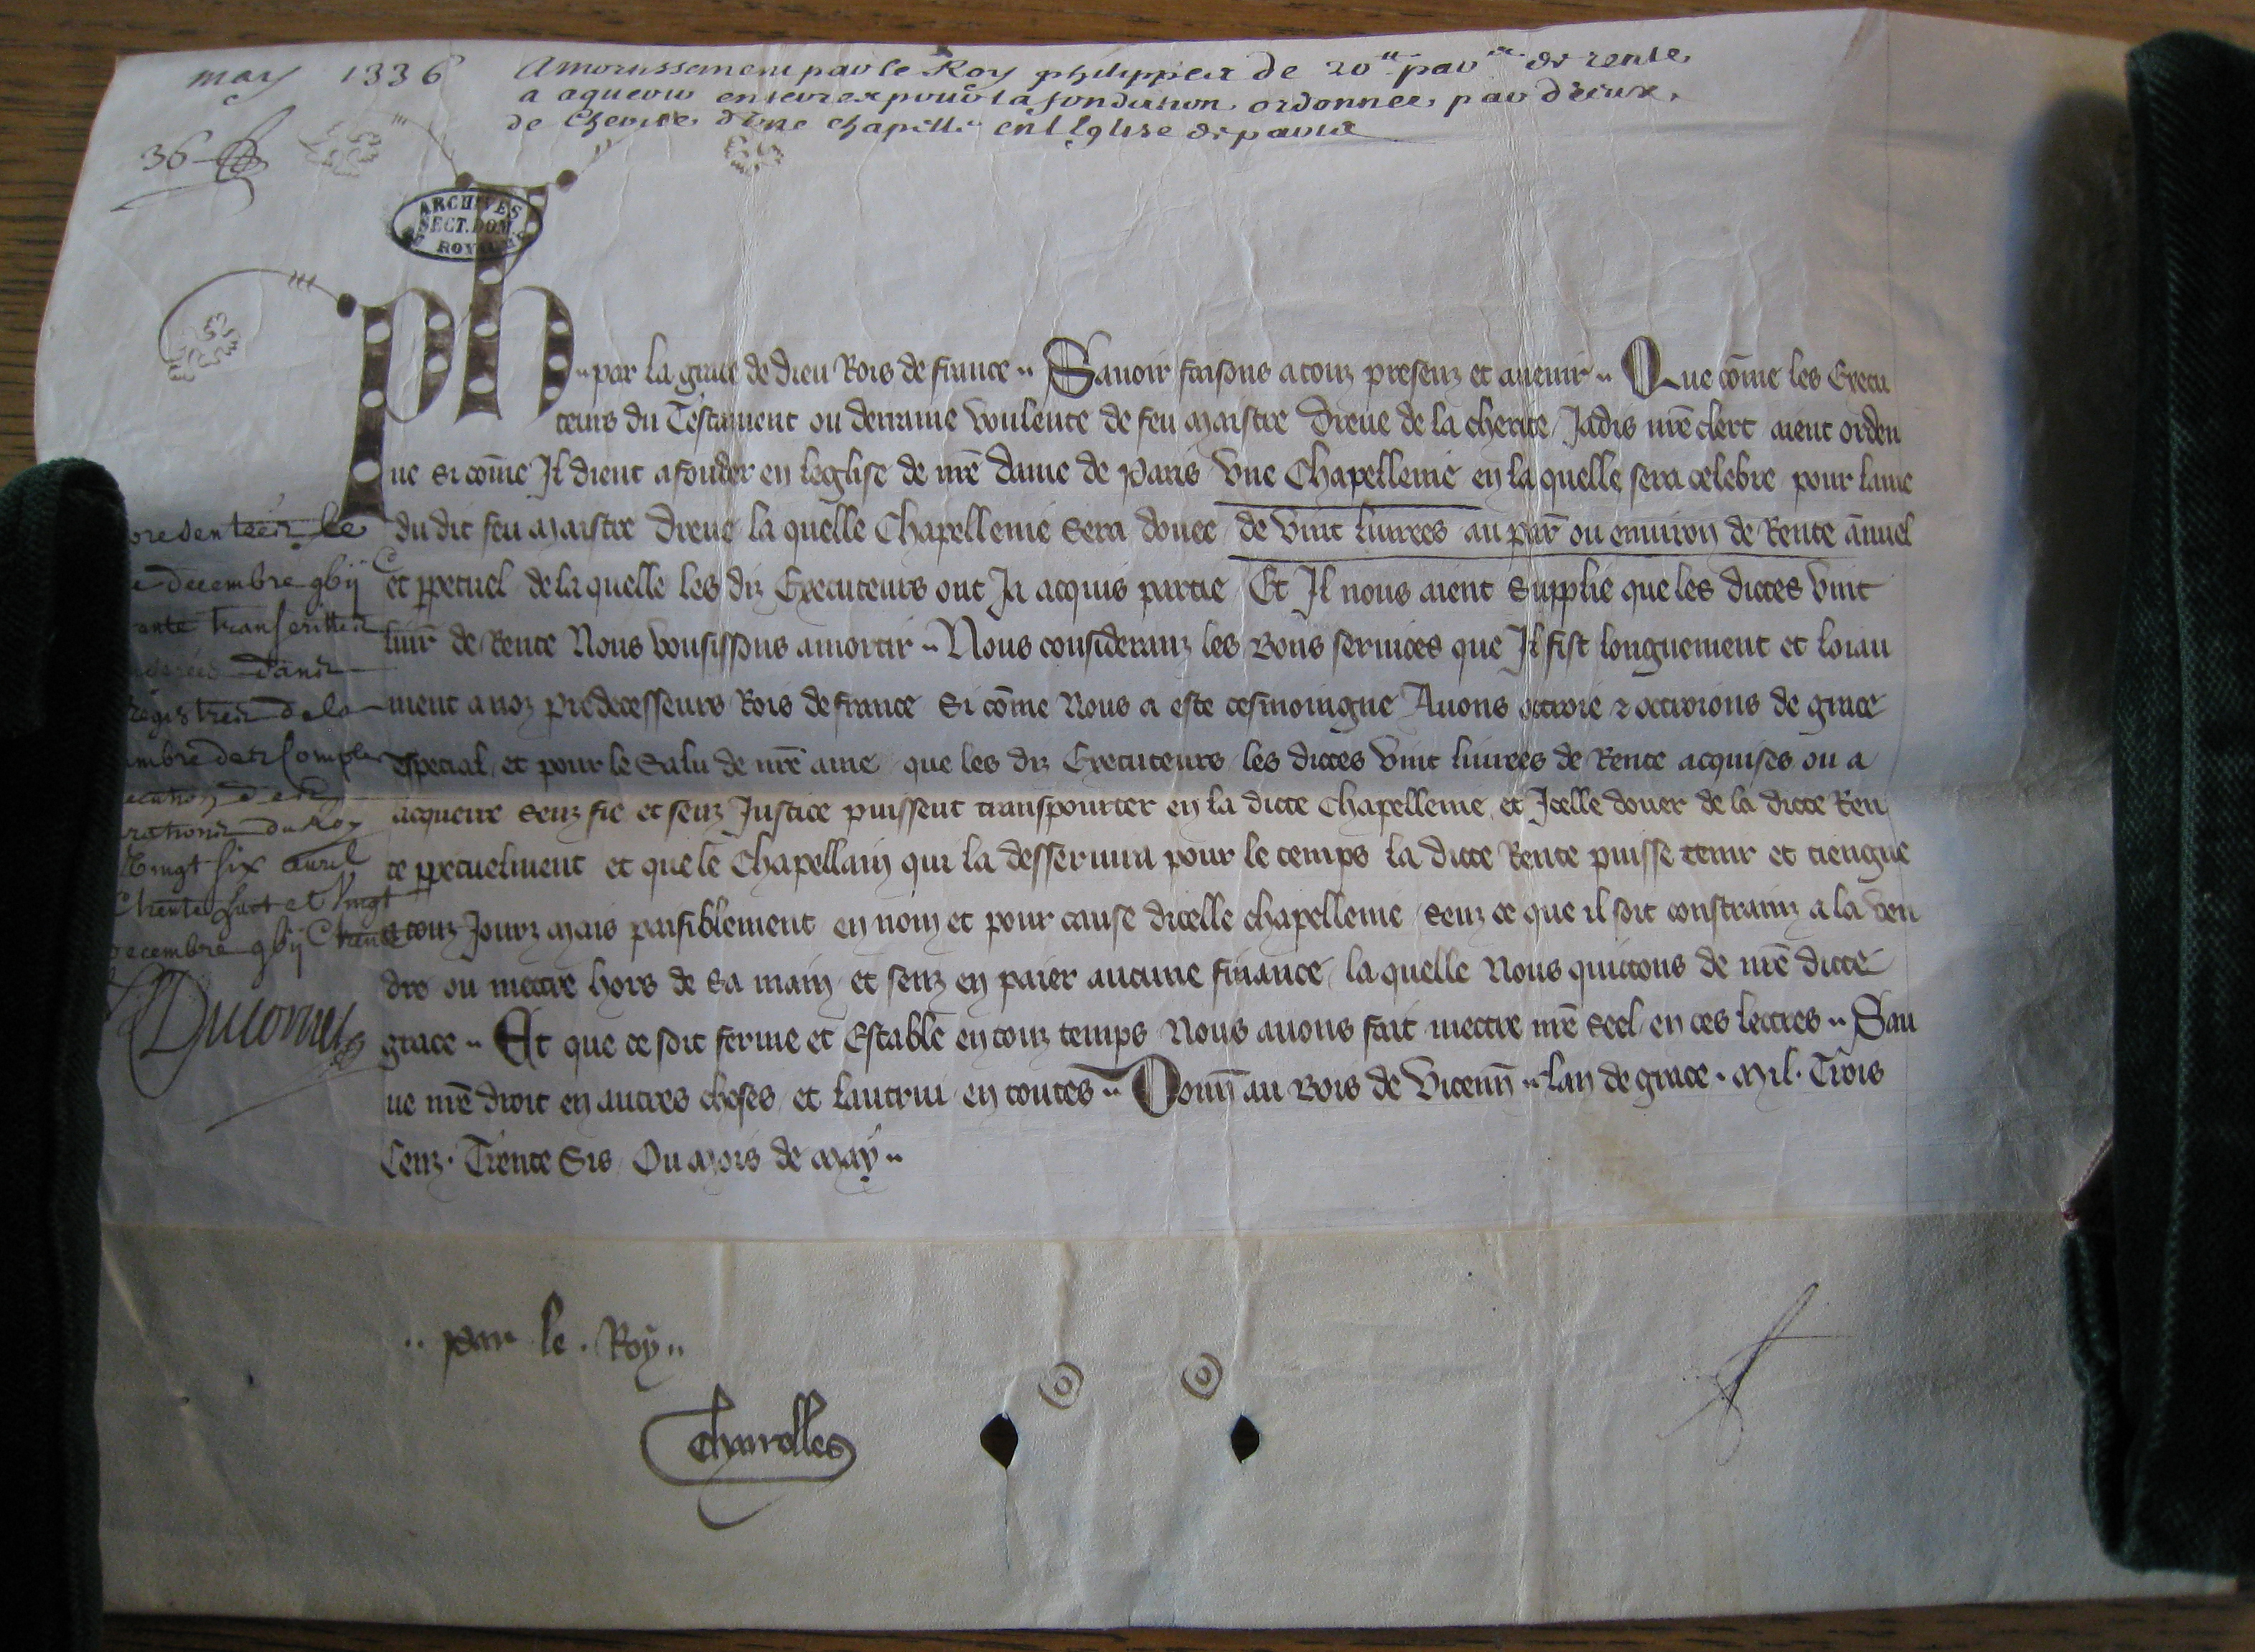 may 1336
Amortissement par le Roy philippes de 20 lt par de rente
a aquerir pour la fondation ordonnee par dreue
de cherite d'une chapelle en l'Eglise de paris
36
ARCHIVES
SECT. DOM.
DU ROYAUME
Ph .. par la grace de dieu Rois de france .. Sauoir faisons a touz presenz et auenir .. Que cōme les Execu
teurs du Testament ou derraine voulente de feu Maistre Dreue de la cherite Jadis nr̄e clerc aient orden
ne si cōme Il dient a fonder en leglise de nr̄e dame de Paris vne Chapellenie en la quelle sera celebre pour lame
du dit feu Maistre Dreue la quelle Chapellenie sera douee de vint liurees au par ou enuiron de Rente ānuel
et ꝑpetuel de la quelle les diz Executeurs ont Ja acquis partie Et Il nous aient supplie que les dictes vint
liur de Rente Nous vousissons amortir .. Nous consideranz les Bons seruices que Il fist longuement et loiau
ment a noz predecesseurs Rois de france si cōme Nous a este tesmoingne Auons ottroie ⁊ ottroions de grace
especial et pour le salu de nr̄e ame que les diz Executeurs les dictes vint liurees de Rente acquises ou a
acquerre senz fie et senz Justice puissent transpourter en la dicte Chapellenie et Icelle douer de la dicte Ren
te ꝑpetuelment et que le Chapellain qui la desseruira pour le temps la dicte Rente puisse tenir et tiengne
a touz Jourz Mais paisiblement en nom et pour cause dicelle chapellenie senz ce que il soit constrainz a la ven
dre ou mectre hors de sa main et senz en paier aucune finance la quelle Nous quictons de nr̄e dicte
grace .. Et que ce soit ferme et Estable en touz temps Nous auons fait mectre nr̄e seel en ces lectres .. Sau
ue nr̄e droit en autres choses et lautrui en toutes .. Donn̄ au Bois de Vicenn̄ .. lan de grace . Mil . Trois
Cenz . Trente Sis Ou Mois de May ..
presentées le
decembre gbij C
trente transcrittes
dans
Registres de la
ambre des Comptes
ecution des
rations du Roy
Vingt six auril
C trente huit et Vingt
decembre gbij C trente
Ducornet
.. par le . Roy ..
Charolles